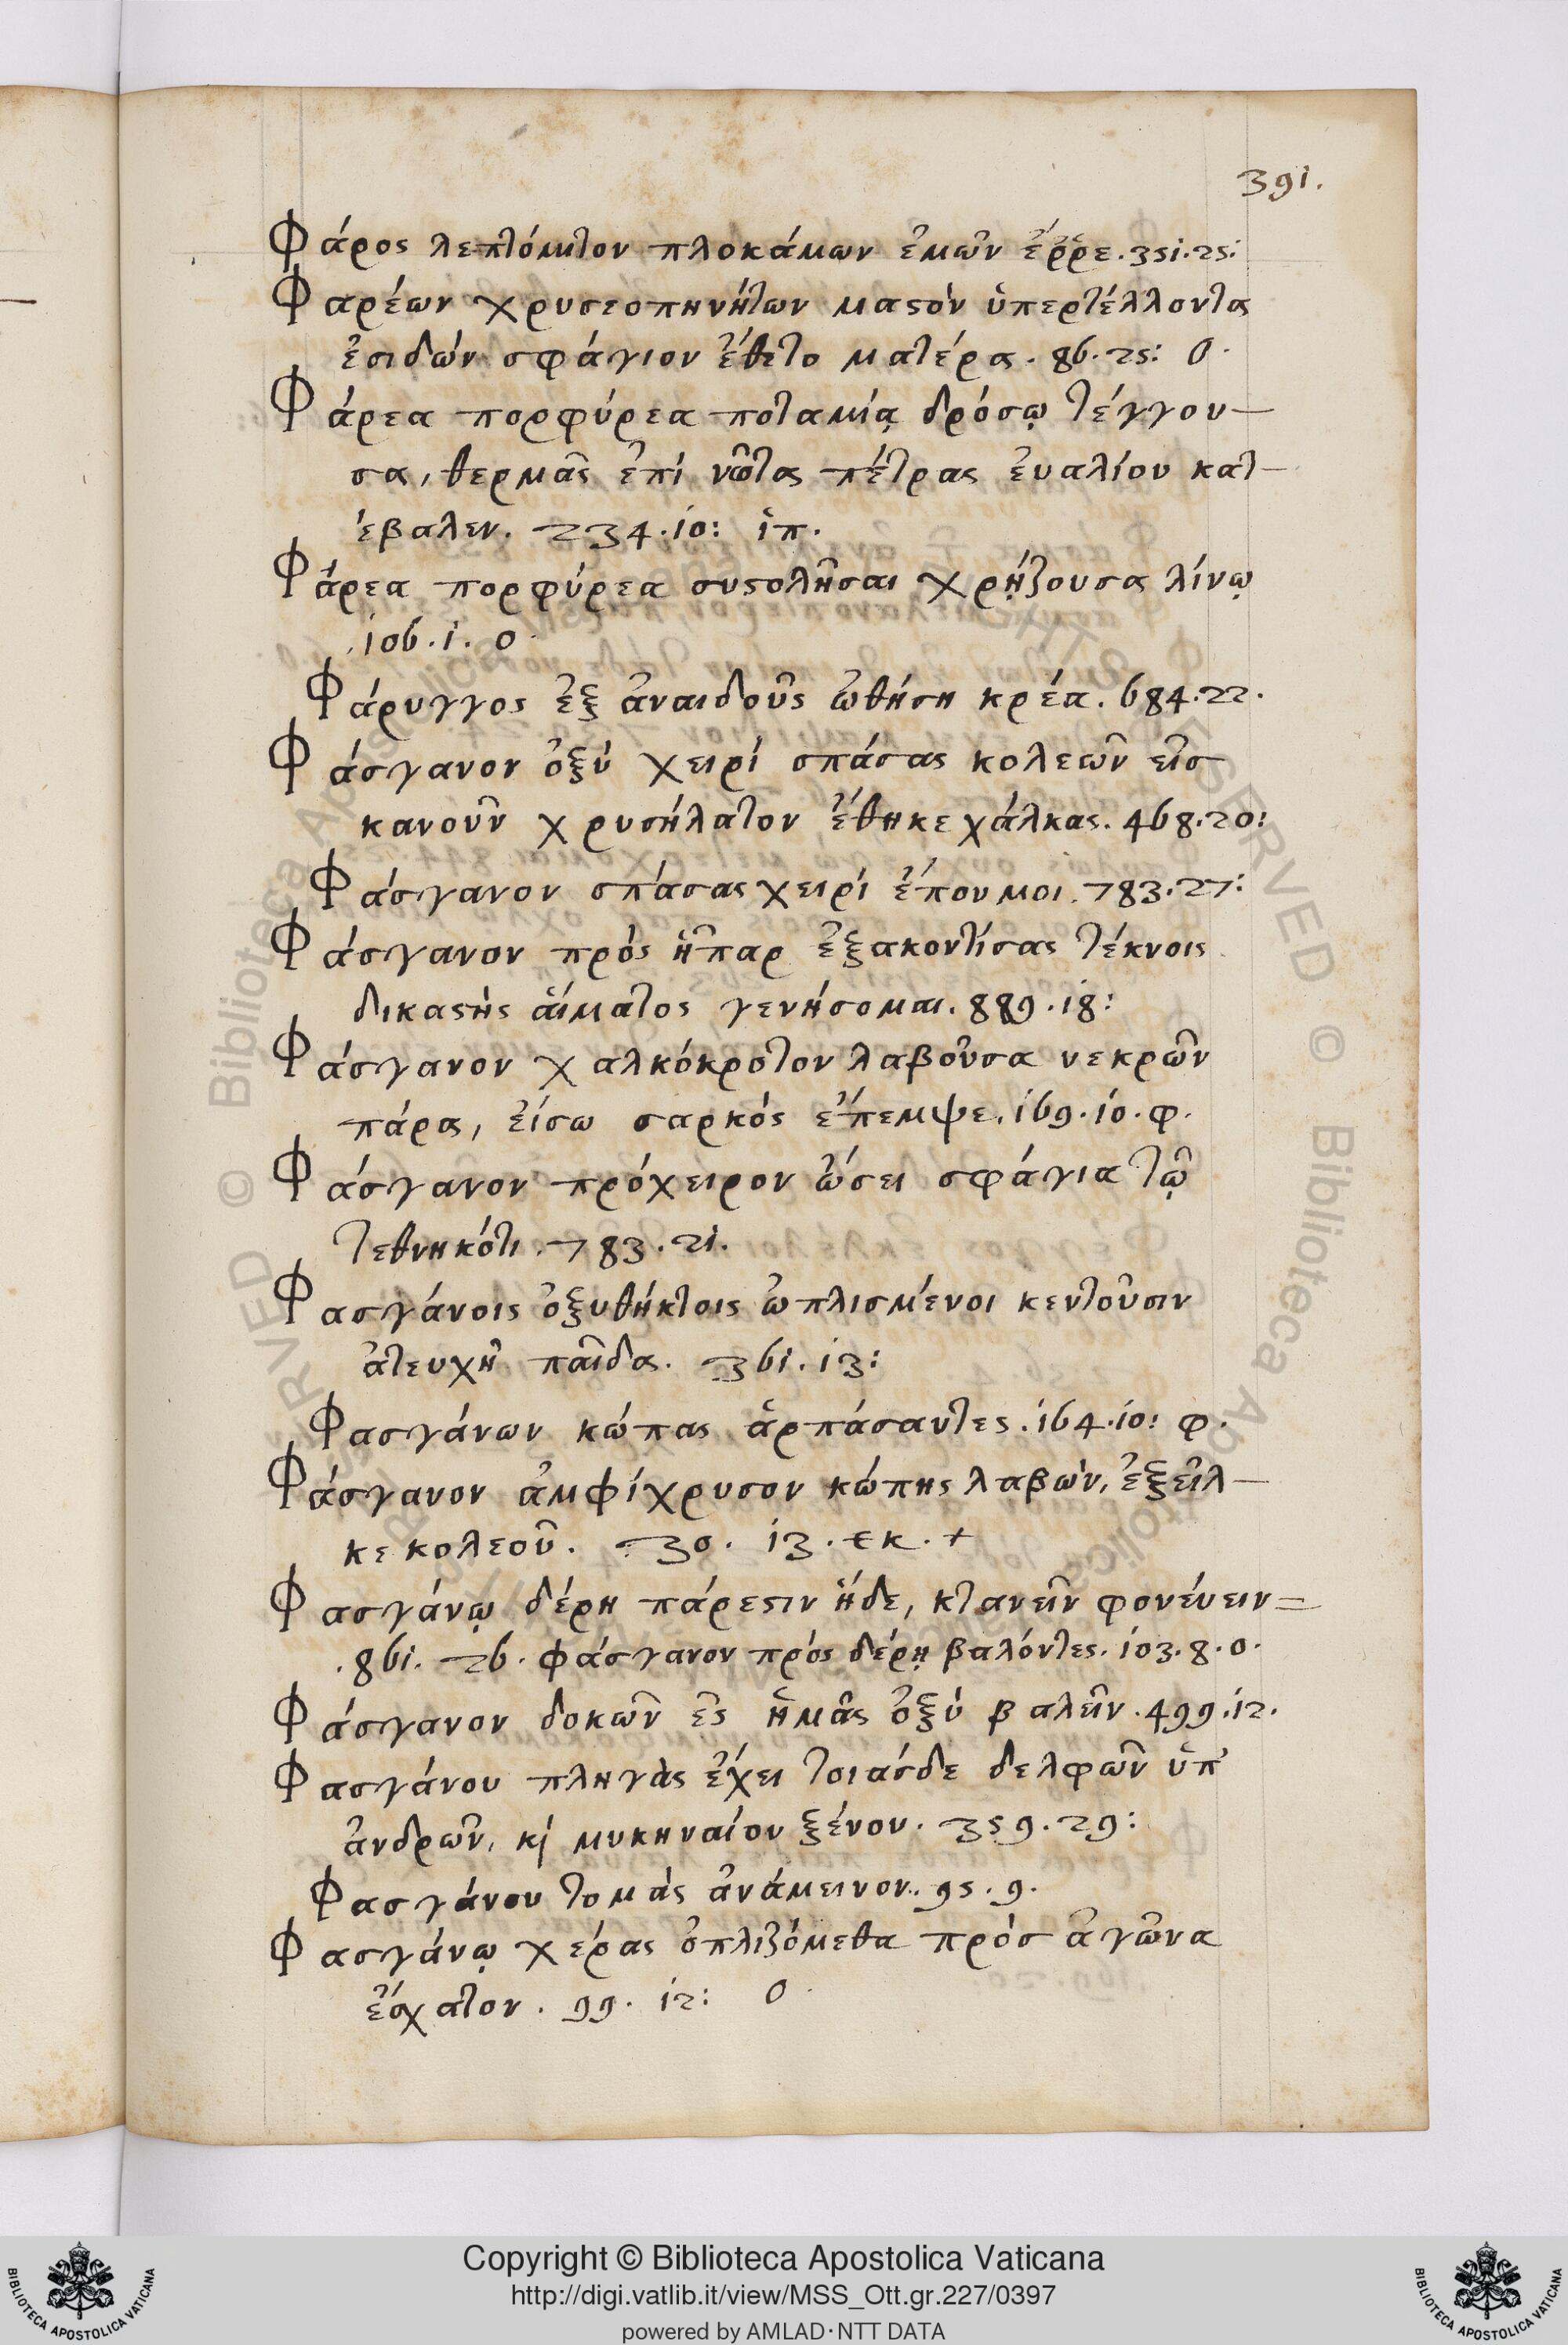 391.
Φάρος λεπτόμιτον πλοκάμων ἐμῶν ἔῤῥε. 351. 25:
Φαρέων χρυσεοπηνήτων μαςὸν ὑπερτέλλοντα
ἐσιδών σφάγιον ἔθετο ματέρα. 86. 25: ο.
Φάρεα πορφύρεα ποταμίᾳ δρόσῳ τέγγου–
σα, θερμᾶς ἐπί νῶτας πέτρας ἐυαλίου κατ–
έβαλεν. 234. 10: ἱπ.
Φάρεα πορφύρεα συςολῆσαι χρῄζουσα λίνῳ
.106. 1. ο
Φάρυγγος ἐξ ἀναιδοῦς ὠθήση κρέα. 684. 22.
Φάσγανον ὀξύ χειρί σπάσας κολεῶν εἰσ
κανοῦν χρυσήλατον ἔθηκε χάλκας. 468. 20:
Φάσγανον σπάσας χειρί ἕπου μοι. 783. 27:
Φάσγανον πρὸς ἧπαρ ἐξακοντίσας τέκνοις
δικαςὴς ἁίματος γενήσομαι. 889. 18:
Φάσγανον χαλκόκροτον λαβοῦσα νεκρῶν
πάρα, ἐίσω σαρκός ἔπεμψε. 169. 10. φ.
Φάσγανον πρόχειρον ὤσει σφάγια τῷ
τεθνηκότι. 783. 21.
Φασγάνοις ὀξυθήκτοις ὠπλισμένοι κεντοῦσιν
ἀτευχῆ παῖδα. 361. 13:
Φασγάνων κώπας ἁρπάσαντες. 164. 10: φ.
Φάσγανον ἀμφίχρυσον κώπης λαβών, ἐξεῖλ–
κε κολεοῦ. 30. 13. εκ. +
Φασγάνῳ δέρη πάρεςιν ἥδε, κτανεῖν φονέυειν =
. 861. 26. φάσγανον πρὸς δέρῃ βαλόντες. 103. 8. ο.
Φάσγανον δοκῶν ἐς ἡμᾶς ὀξύ βαλεῖν. 499. 12.
Φασγάνου πληγὰς ἔχει τοιάσδε δελφῶν ὑπ'
ἀνδρῶν, κὶ μυκηναίου ξένου. 359. 29:
Φασγάνου τομὰς ἀνάμεινον. 95. 9.
Φασγάνῳ χέρας ὁπλιζόμεθα πρὸσ ἀγῶνα
ἔσχατον. 99. 12: ο
Copyright © Biblioteca Apostolica Vaticana
http://digi.vatlib.it/view/MSS_Ott.gr.227/0397
powered by AMLAD·NTT DATA
BIBLIOTECA APOSTOLICA VATICANA
BIBLIOTECA APOSTOLICA VATICANA